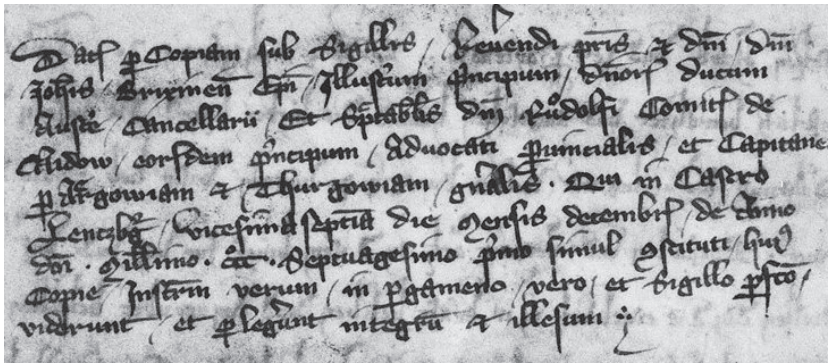 Datˀ per Copiam sub Sigillis / Reverendi pris̄ ⁊ dn̄i / dn̄i
Joh̄is / Brixinen̄ Ep̄i / Illustrium principum / dn̄orˀ ducum
Austͤ / Cancellarii / Et Spectabil̄is dn̄i Ruͦdolfi Comitˀ de
Nidow / eorˀdem principum / Advocati provincialis / et Capitanei
per Argowiam ⁊ Thurgowiam / gn̄alis · Qui in Castro
Lentzbḡ / vicesimaseptīa die Mensis decembrˀ / de Anno
dn̄i · Millimo · ccͦc · Septuagesimo primo simul ꝯstituti / huiꝰ
Copie / Instrm̄ verum / in pergameno / vero / et Sigillo perfcō /
viderunt / et perlegerunt integrū ⁊ illesum